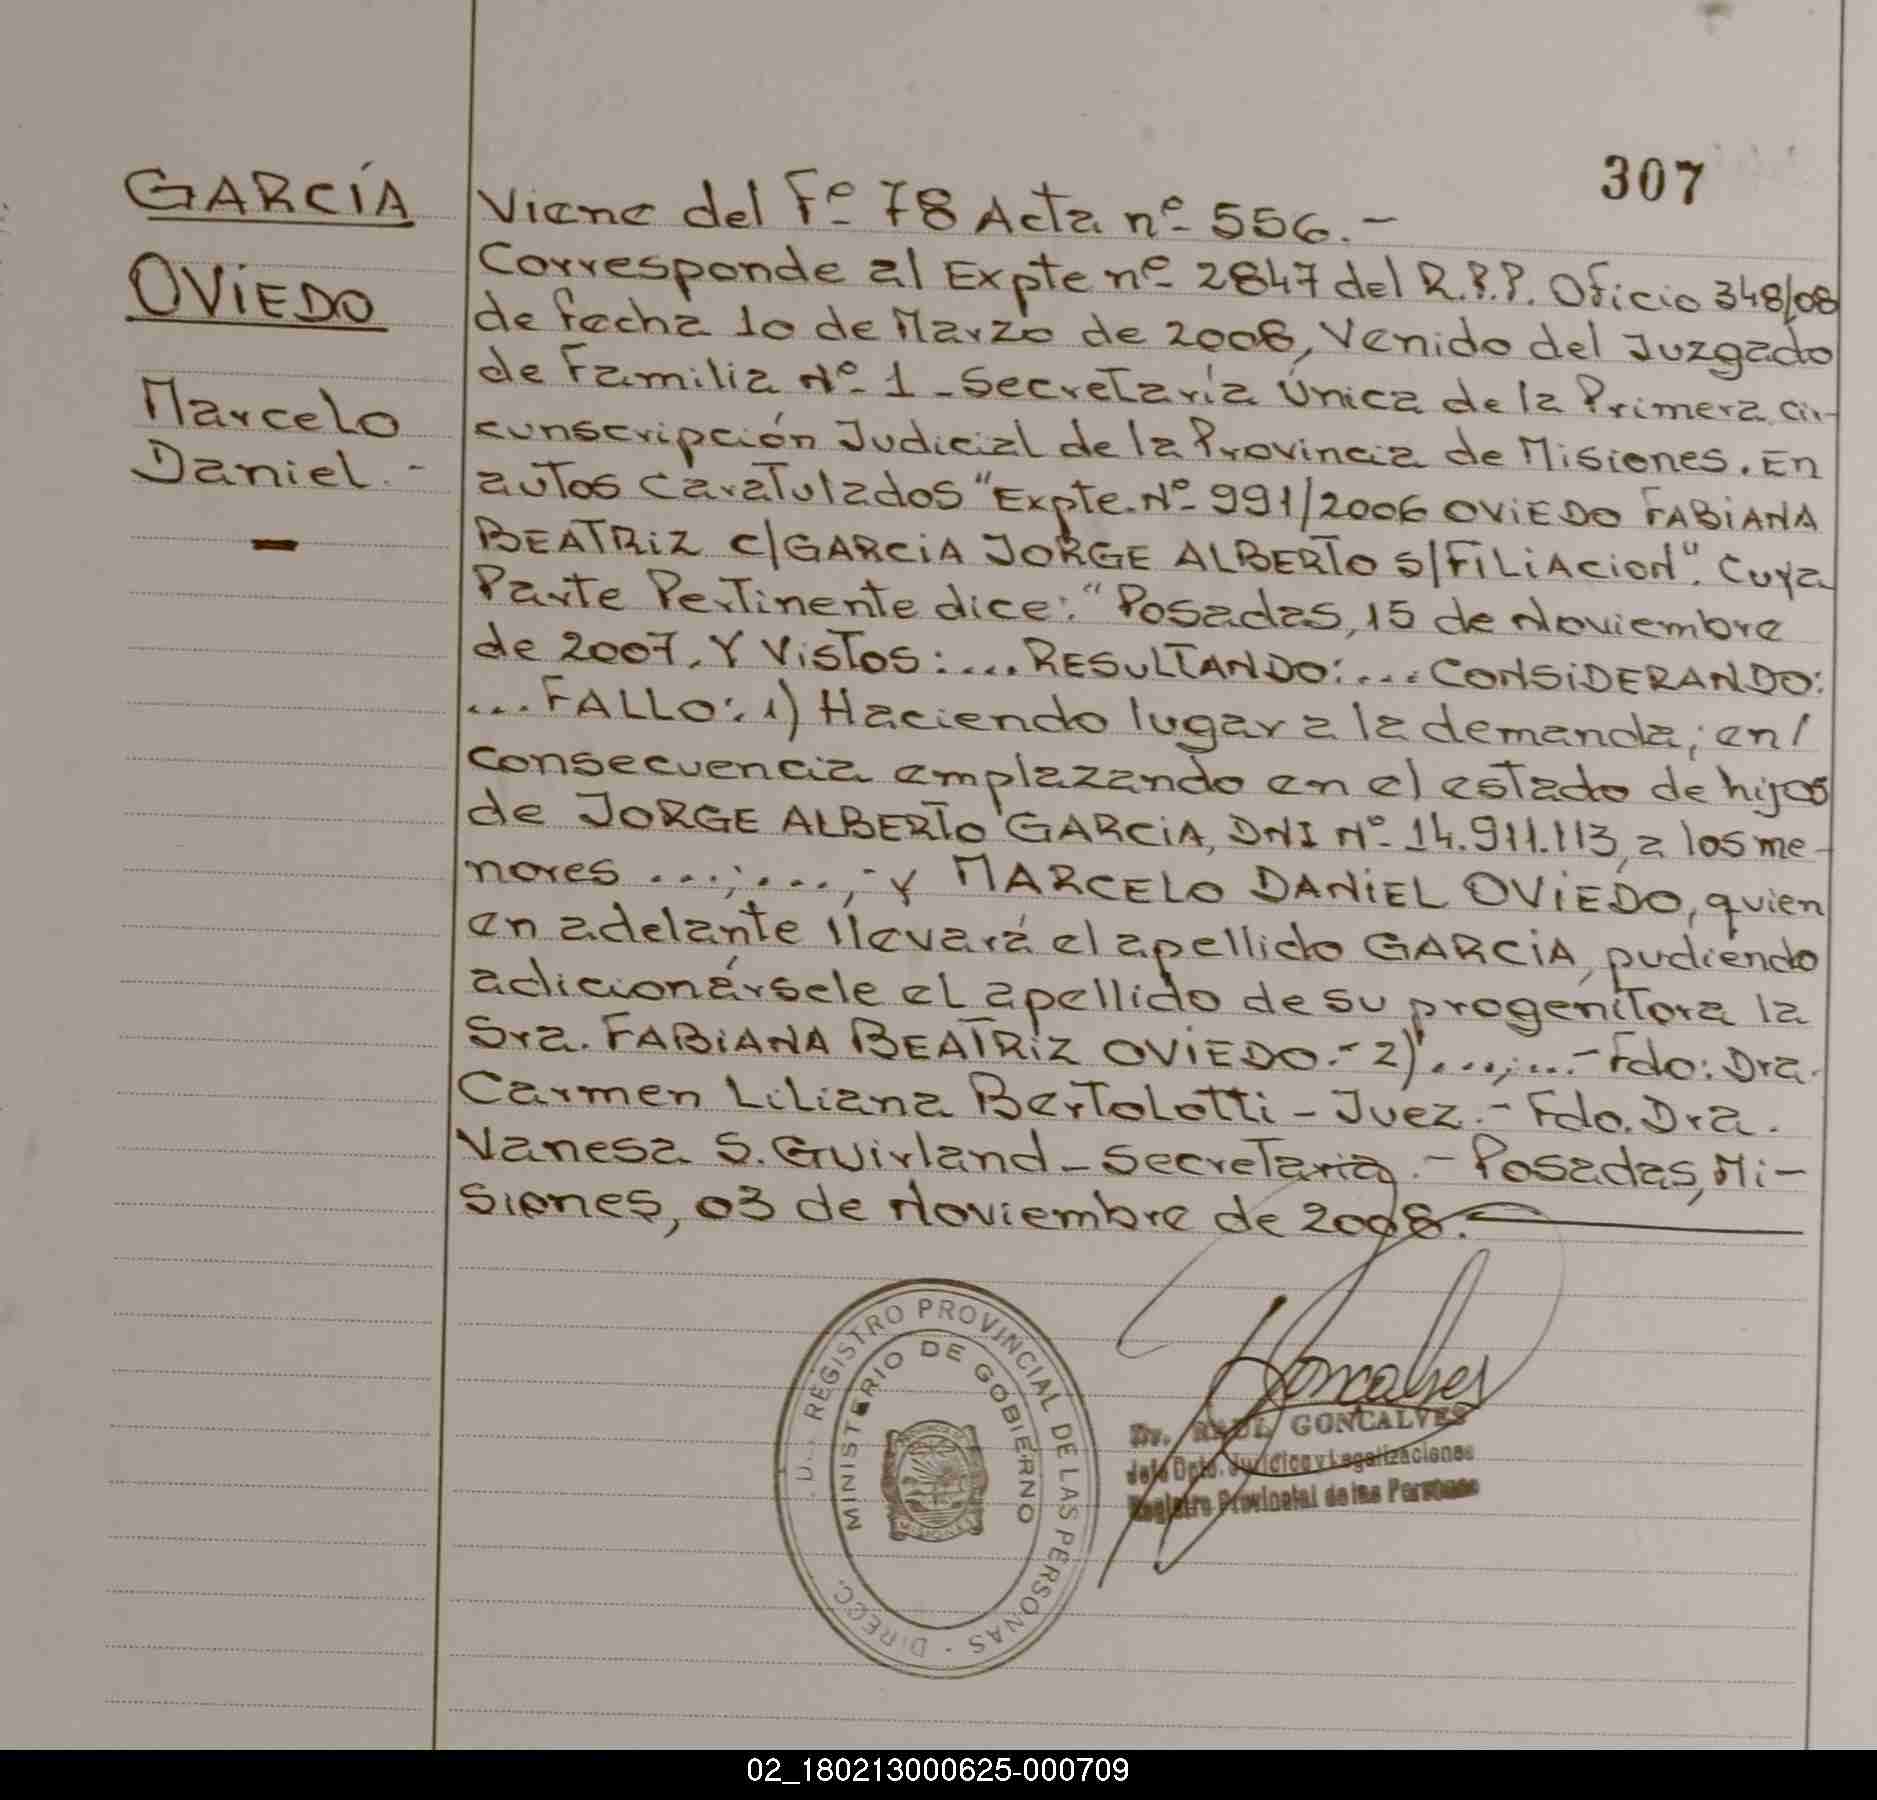 307
GARCÍA
OVIEDO
Marcelo
Daniel.-
Viene del Fº 78 Acta nº 556.-
Corresponde al Expte nº 2847 del R.P.P. Oficio 348/08
de fecha 10 de Marzo de 2008, Venido del Juzgado
de Familia Nº 1 - Secretaría Única de la Primera cir-
cunscripción Judicial de la Provincia de Misiones. En
autos caratulados "Expte. Nº 991/2006 OVIEDO FABIANA
BEATRIZ c/GARCIA JORGE ALBERTO s/FILIACION". Cuya
Parte Pertinente dice: "Posadas, 15 de Noviembre
de 2007. Y VISTOS:.... RESULTANDO:.... CONSIDERANDO:
...FALLO: 1) Haciendo lugar a la demanda; en/
consecuencia emplazando en el estado de hijos
de JORGE ALBERTO GARCIA, DNI Nº 14.911.113, a los me-
nores ...;...,-y MARCELO DANIEL OVIEDO, quien
en adelante llevará el apellido GARCIA, pudiendo
adicionársele el apellido de su progenitora la
Sra. FABIANA BEATRIZ OVIEDO.- 2)....;...- Fdo: Dra.
Carmen Liliana Bertolotti - Juez.- Fdo. Dra.
Vanesa S. Guirland - Secretaria.- Posadas, Mi-
siones, 03 de Noviembre de 2008.
REGISTRO PROVINCIAL DE LAS PERSONAS - DIRECC.
MINISTERIO DE GOBIERNO
MISIONES
Goncalves
Dr. RAUL GONCALVES
Jefe Dpto. Jurídico y Legalizaciones
Registro Provincial de las Personas
02_180213000625-000709